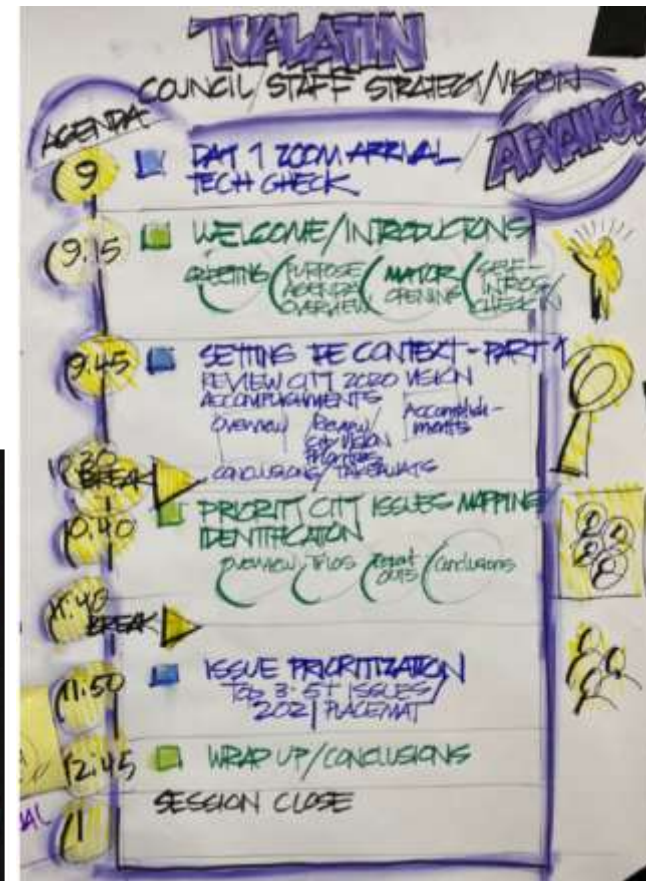 TUALATIN
COUNCIL/STAFF STRATEGY/VISION
ADVANCE
AGENDA
9 DAY 1 ZOOM ARRIVAL
TECH CHECK
9:15 WELCOME/INTRODUCTIONS
GREETING PURPOSE AGENDA OVERVIEW MAYOR OPENING SELF-INTROS/CHECK IN
9:45 SETTING THE CONTEXT - PART 1
REVIEW CITY 2020 VISION
ACCOMPLISHMENTS
OVERVIEW REVIEW CITY VISION PRIORITIES Accomplish-ments
CONCLUSIONS/TAKEAWAYS
10:30 BREAK
10:40 PRIORITY CITY ISSUES MAPPING/
IDENTIFICATION
OVERVIEW TRIOS Report OUTS Conclusions
11:40
BREAK
11:50 ISSUE PRIORITIZATION
TOP 3-5+ ISSUES/
2021 PLACEMAT
12:45 WRAP UP/CONCLUSIONS
1 SESSION CLOSE